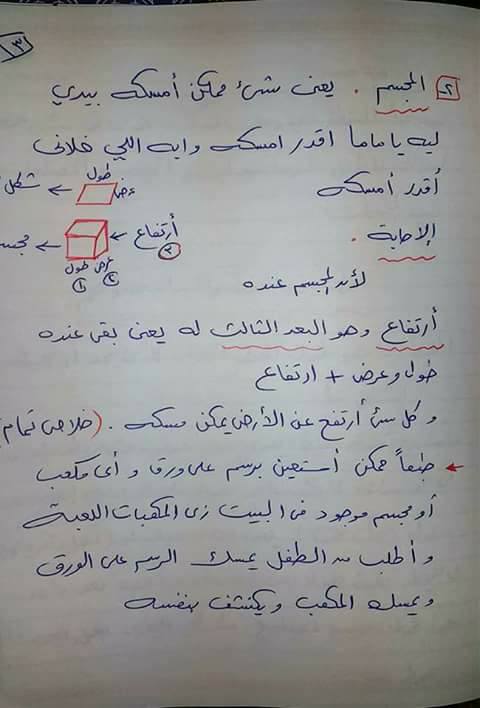 ٣
٢ المجسم . يعنى شئ ممكن أمسكه بيدي
ليه يا ماما اقدر امسكه وايه اللي خلانى
أقدر أمسكه
طول
عرض ← شكل
الإجابة .
أرتفاع ← مجسم
٣
طول عرض
١ ٢
لأن المجسم عنده
أرتفاع وهو البعد الثالث له يعنى بقى عنده
طول وعرض + ارتفاع
وكل شئ أرتفع عن الأرض يمكن مسكه . (خلاص تمام)
← طبعاً ممكن أستعين برسم على ورق وأى مكعب
أو مجسم موجود فى البيت زى المكعبات اللعبة
وأطلب من الطفل يمسك الرسم على الورق
ويمسك المكعب ويكتشف بنفسه